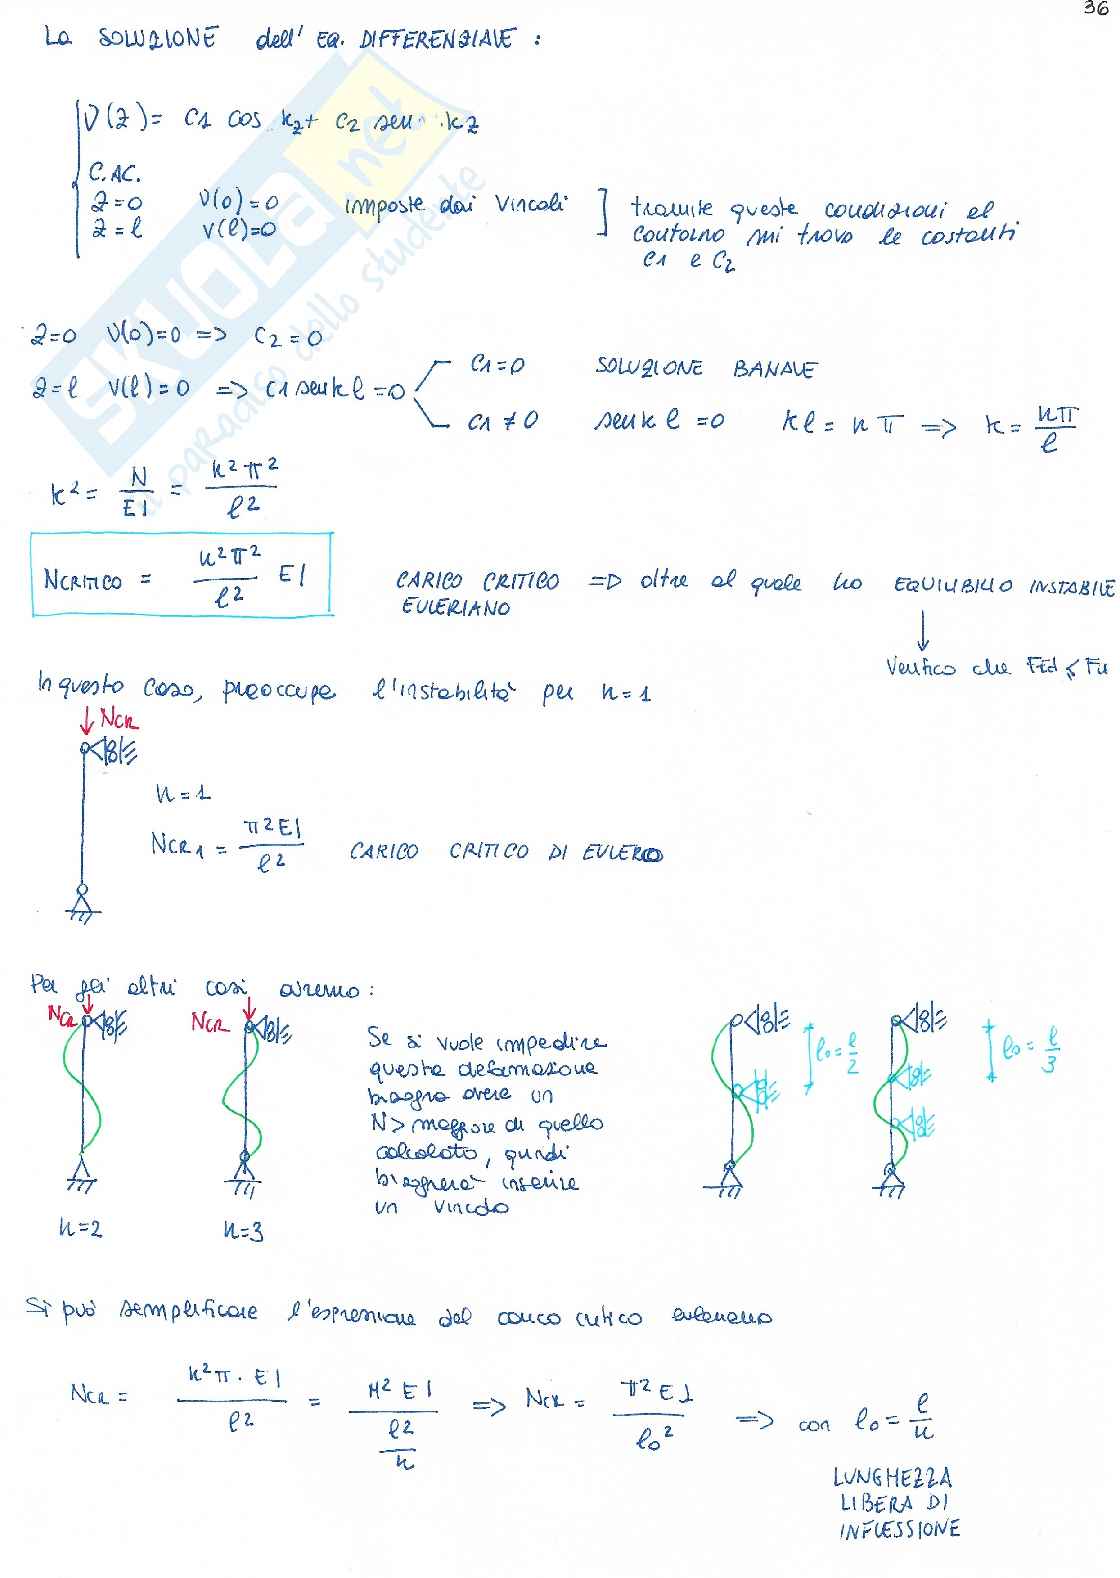 36
La SOLUZIONE dell' EQ. DIFFERENZIALE :
V(z)= C1 cos kz+ C2 sen kz
C.AC.
z=0 V(0)=0 imposte dai Vincoli
z=l V(l)=0
tramite queste condizioni al
contorno mi trovo le costanti
C1 e C2
z=0 V(0)=0 => C2=0
z=l V(l)=0 => C1 senkl=0
C1=0 SOLUZIONE BANALE
C1≠0 senk l=0 kl= nπ => k= nπ/l
k²= N/EI = n²π²/l²
NCRITICO = n²π²/l² EI
CARICO CRITICO => oltre al quale ho EQUILIBRIO INSTABILE
EULERIANO
Verifico che FEd ≤ Fu
In questo caso, preoccupa l'instabilità per n=1
NCR
n=1
NCR1 = π²EI/l² CARICO CRITICO DI EULERO
Per gli altri casi avremo:
NCR
NCR
Se si vuole impedire
questa deformazione
bisogna avere un
N> maggiore di quello
calcolato, quindi
bisognerà inserire
un vincolo
l0=l/2
l0=l/3
n=2
n=3
Si può semplificare l'espressione del carico critico euleriano
NCR = n²π. EI/l² = π² EI/l²/n => NCR = π² EI/l0² => con l0=l/n
LUNGHEZZA
LIBERA DI
INFLESSIONE
SKUOLA.net
il paradiso dello studente